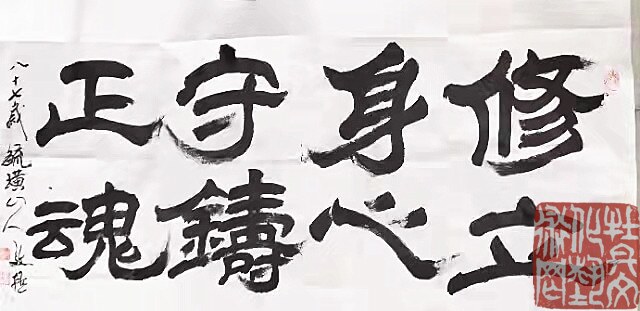 修身守正
立心鑄魂
八十七歲 毓璜山人